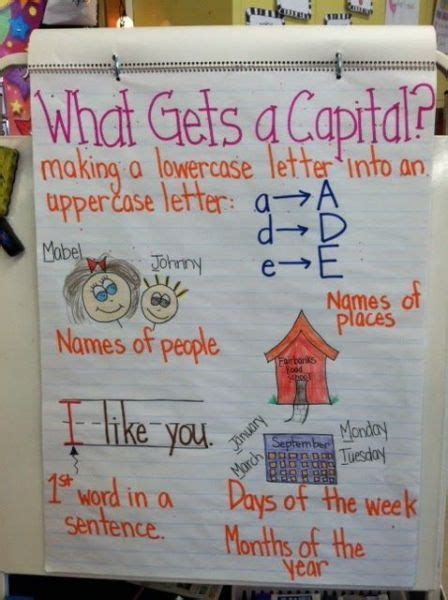 What Gets a Capital?
making a lowercase letter into an
uppercase letter:
a→A
d→D
e→E
Mabel
Johnny
Names of people
Names of
places
Fairbanks
Road
School
I like you.
1st word in a
sentence.
January
March
September
Monday
Tuesday
Days of the week
Months of the
year